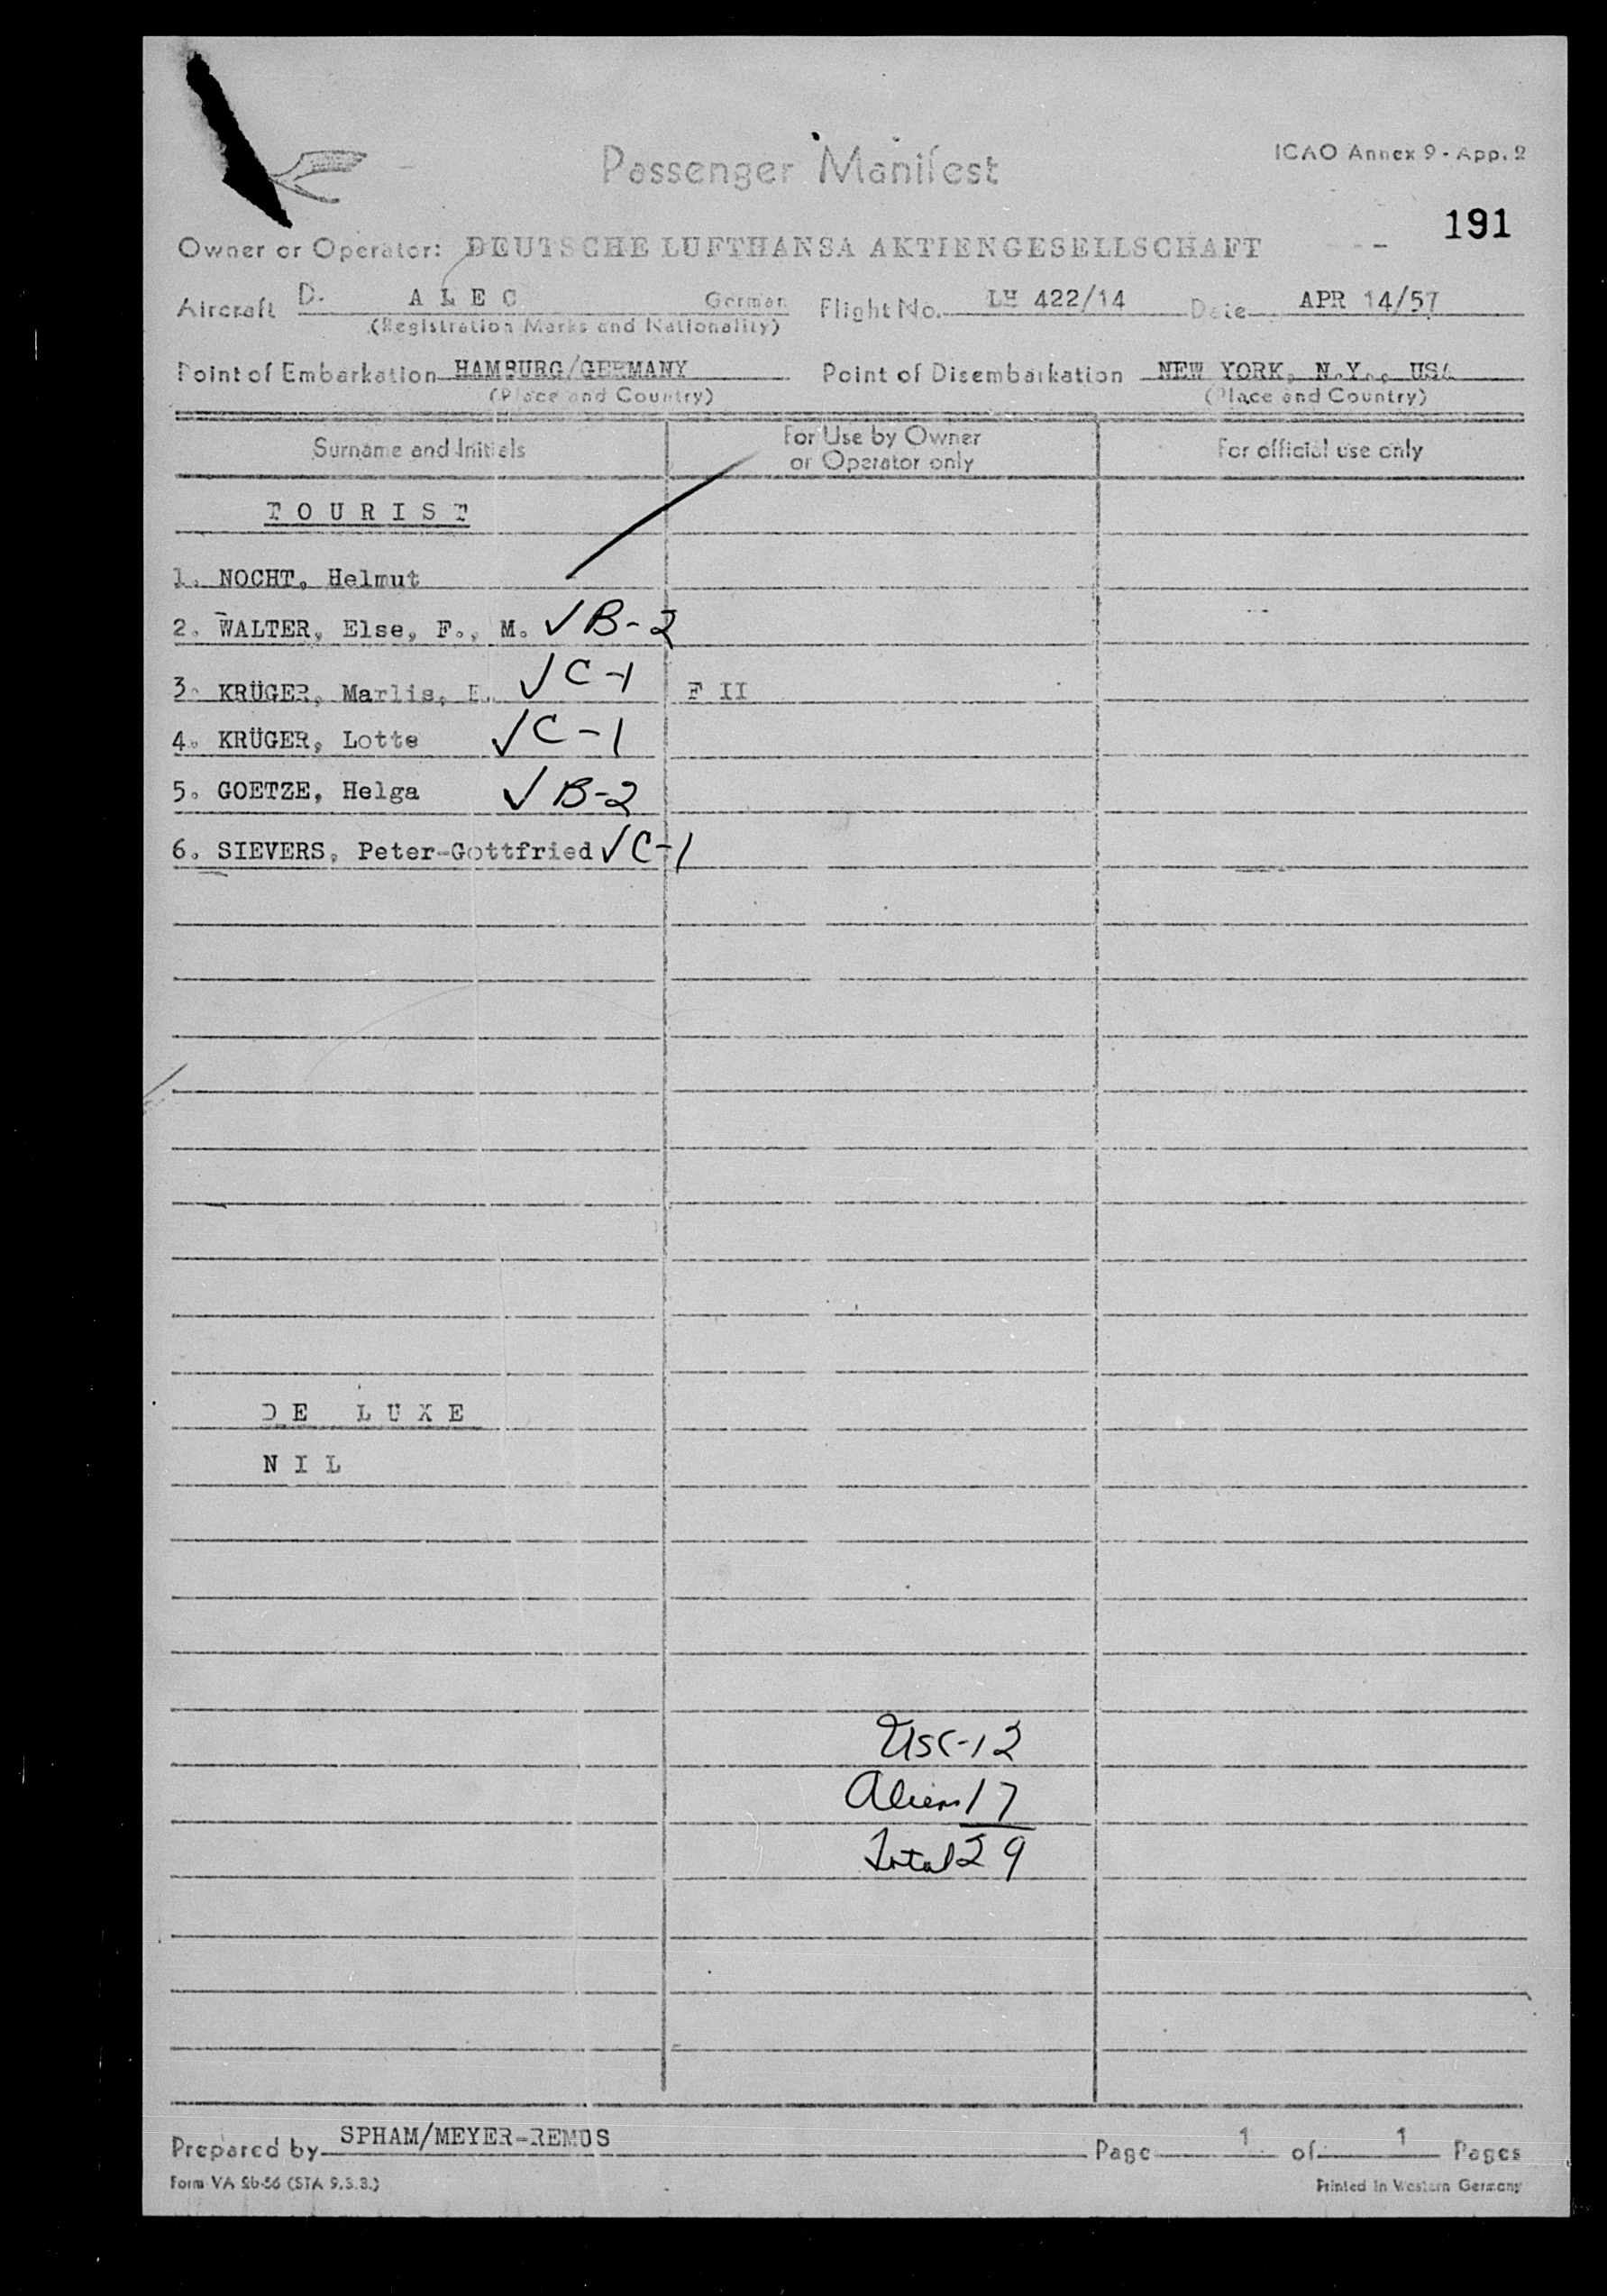 Passenger Manifest
ICAO Annex 9 - App. 2
191
Owner or Operator: DEUTSCHE LUFTHANSA AKTIENGESELLSCHAFT
Aircraft D. ALEC German Flight No. LH 422/14 Date APR 14/57
(Registration Marks and Nationality)
Point of Embarkation HAMBURG/GERMANY Point of Disembarkation NEW YORK, N.Y., USA
(Place and Country) (Place and Country)
Surname and Initials For Use by Owner or Operator only For official use only
T O U R I S T
1. NOCHT, Helmut
2. WALTER, Else, F., M. ✓ B-2
3. KRÜGER, Marlis, ✓ C-1 F II
4. KRÜGER, Lotte ✓ C-1
5. GOETZE, Helga ✓ B-2
6. SIEVERS, Peter-Gottfried ✓ C-1
D E L U X E
N I L
USC-12
Alien 17
Total 29
Prepared by SPHAM/MEYER-REMUS Page 1 of 1 Pages
Form VA 2b-56 (STA 9.3.3.) Printed in Western Germany